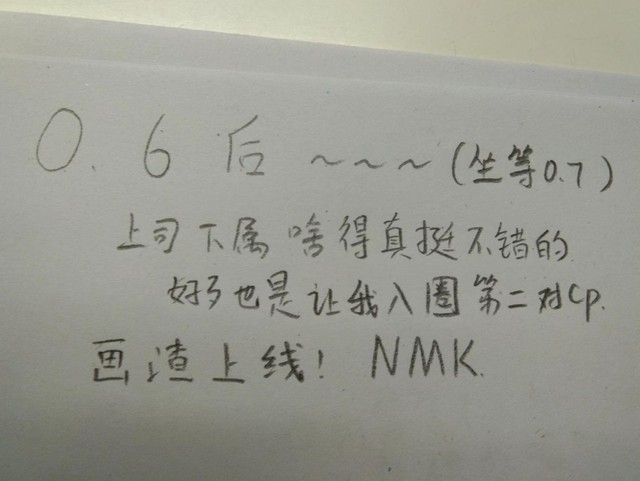 0.6后~~~(坐等0.7)
上司下属啥得真挺不错的
好了也是让我入圈第二对cp.
画渣上线！NMK.